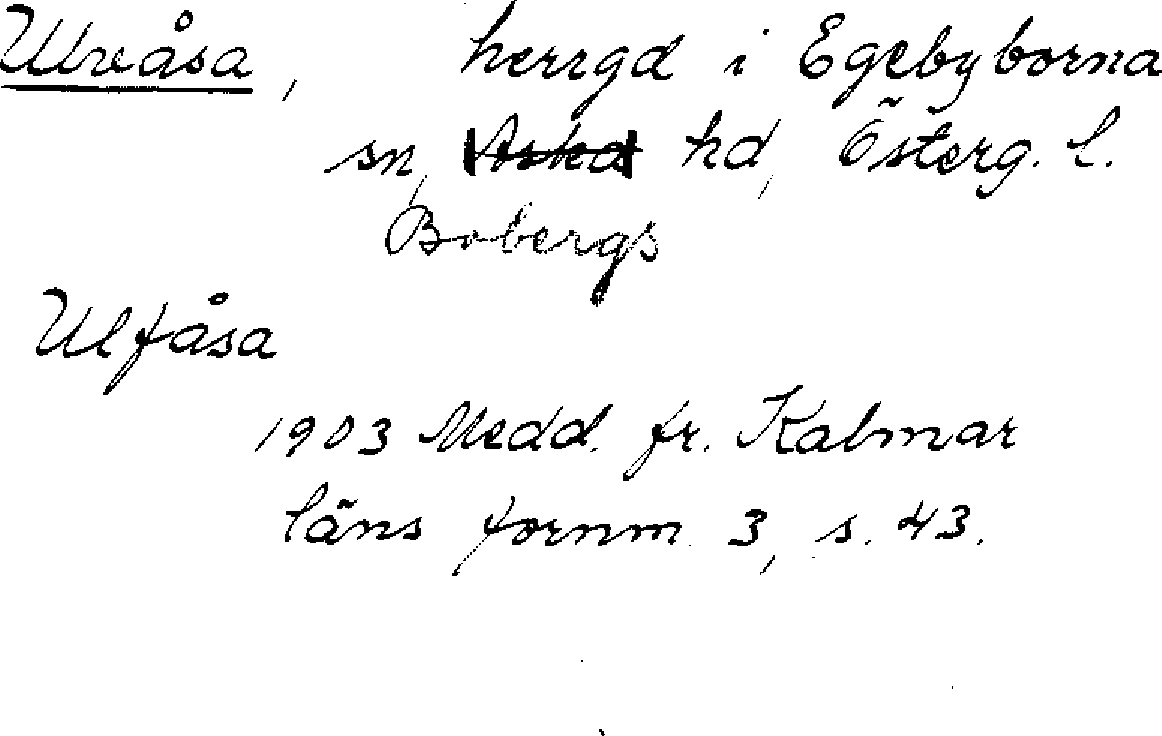 Ulvåsa, herrgd i Egebyborna
sn, Aska hd, Österg. l.
Bobergs
Ulfåsa
1903 Medd. fr. Kalmar
läns fornm. 3, s. 43.